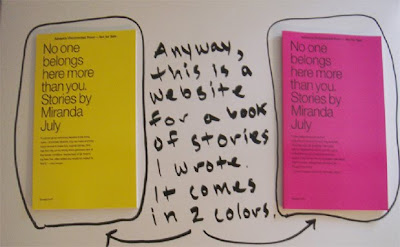 No one
belongs
here more
than you.
Stories by
Miranda
July
Anyway,
this is a
website
for a book
of stories
I wrote.
It comes
in 2 colors.
No one
belongs
here more
than you.
Stories by
Miranda
July